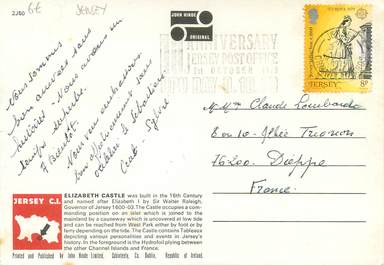 2J50 6€ JERSEY
JOHN HINDE
ORIGINAL
ANNIVERSARY
JERSEY POST OFFICE
1st OCTOBER 1979
JERSEY 8p
Nous sommes
bien arrivés sans
histoires. Nous avons un
temps
F Boulot.
Nous vous embrassons
bien affectueusement sans
oublier le Sébastien
Sylvie
M. Mme Claude Lombardo
8 on 10 Allée Trianon
76200. Dieppe
France.
JERSEY C.I.
ELIZABETH CASTLE was built in the 16th Century
and named after Elizabeth I by Sir Walter Raleigh,
Governor of Jersey 1600-03. The Castle occupies a com-
manding position on an islet which is joined to the
mainland by a causeway which is uncovered at low tide
and can be reached from West Park either by foot or by
ferry depending on the tide. The Castle contains Tableaux
depicting various personalities and events in Jersey's
history. In the foreground is the Hydrofoil plying between
the other Channel Islands and France.
Printed and Published by John Hinde Limited, Cabinteely, Co. Dublin, Republic of Ireland.